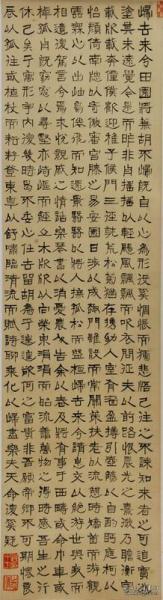 歸去來兮田園將蕪胡不歸既自以心為形役奚惆悵而獨悲悟已往之不諫知來者之可追實
塗其未遠覺今是而昨非舟搖搖以輕颺風飄飄而吹衣問征夫以前路恨晨光之熹微乃瞻衡宇
載欣載奔僮僕歡迎稚子候門三逕就荒松菊猶存攜幼入室有酒盈樽引壺觴以自酌眄庭柯以
怡顏倚南窗以寄傲審容膝之易安園日涉以成趣門雖設而常關策扶老以流憩時矯首而遐觀
雲無心以出岫鳥倦飛而知還景翳翳以將入撫孤松而盤桓歸去來兮請息交以絕游世與我而
相遺復駕言兮焉求悅親戚之情話樂琴書以消憂農人告余以春及將有事于西疇或命巾車或
棹孤舟既窈窕以尋壑亦崎嶇而經丘木欣欣以向榮泉涓涓而始流萬物之得時感吾生之行
休已矣乎寓形宇內復幾時曷不委心任去留胡為乎遑遑欲何之富貴非吾願帝鄉不可期懷良
辰以孤往或植杖而耘耔登東皋以舒嘯臨清流而賦詩聊乘化以歸盡樂夫天命復奚疑